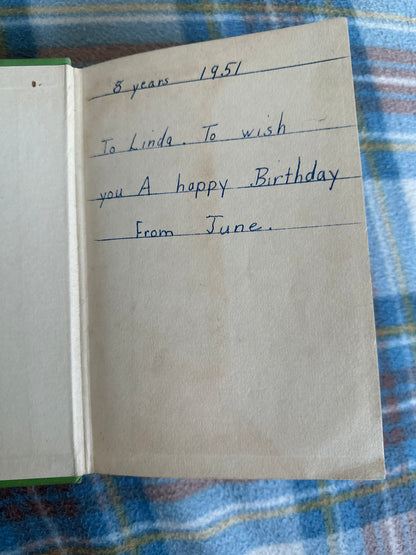 8 years 1951
To Linda. To wish
you A happy Birthday
From June.